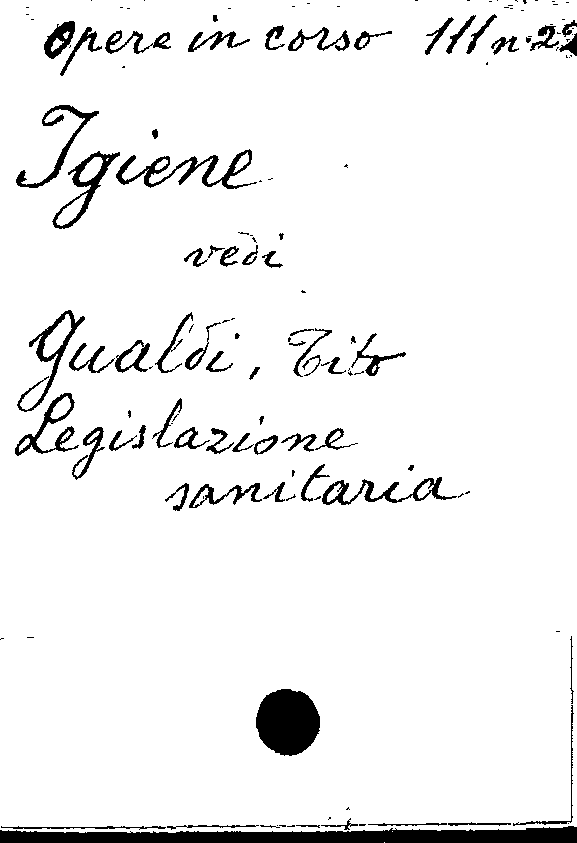 Opere in corso III n. 22
Igiene
vedi
Gualdi, Tito
Legislazione
sanitaria